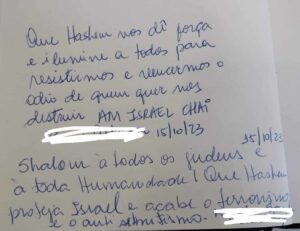 Que Hashem nos dê força
e ilumine a todos para
resistirmos e vencermos o
ódio de quem quer nos
destruir AM ISRAEL CHAI
15/10/23
15/10/23
Shalom à todos os judeus e
à toda Humanidade! Que Hashem
proteja Israel e acabe o terrorismo
e o anti semitismo.